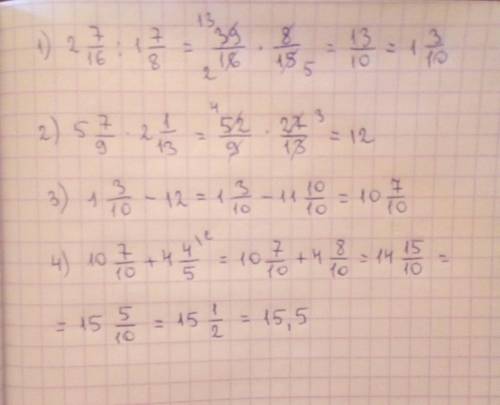 1) 2 7/16 : 1 7/8 = 39/16 · 8/15 = 13/10 = 1 3/10 13 2 5
2) 5 7/9 · 2 1/13 = 52/9 · 27/13 = 12 4 3
3) 1 3/10 − 12 = 1 3/10 − 11 10/10 = 10 7/10
4) 10 7/10 + 4 4/5 \2 = 10 7/10 + 4 8/10 = 14 15/10 =
= 15 5/10 = 15 1/2 = 15,5